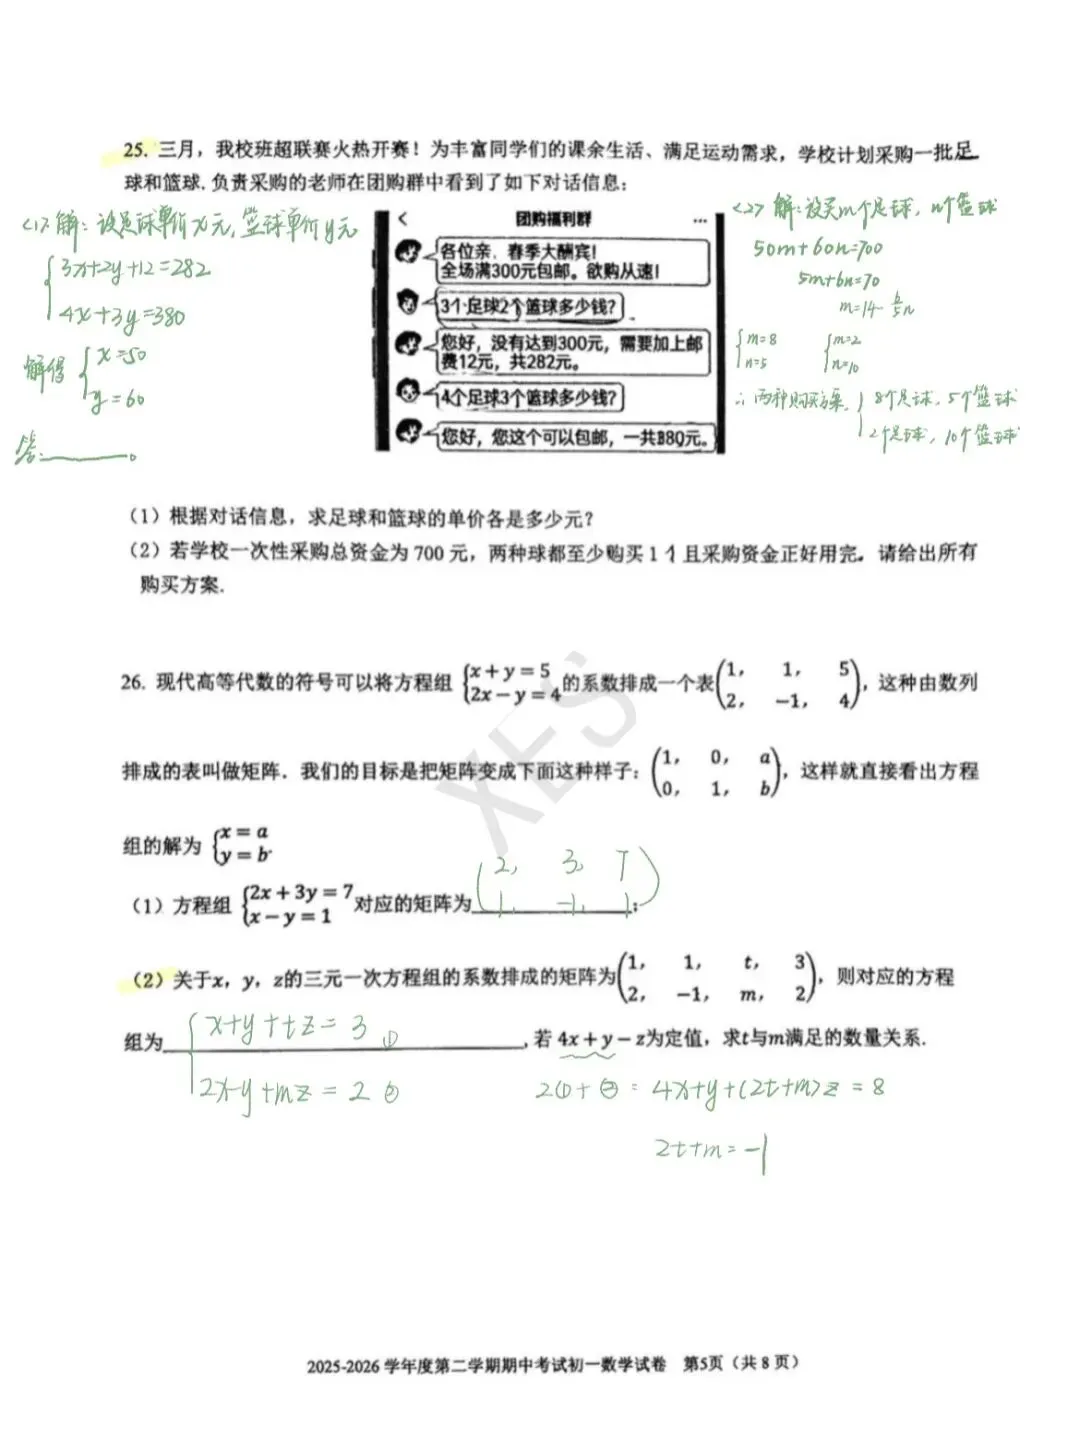 25. 三月，我校班超联赛火热开赛！为丰富同学们的课余生活、满足运动需求，学校计划采购一批足
球和篮球.负责采购的老师在团购群中看到了如下对话信息：
<1> 解：设足球单价x元,篮球单价y元
{3x+2y+12=282
4x+3y=380
解得 {x=50
y=60
答:______。
< 团购福利群 ...
各位亲，春季大酬宾！
全场满300元包邮。欲购从速！
3个足球2个篮球多少钱？
您好，没有达到300元，需要加上邮
费12元，共282元。
4个足球3个篮球多少钱？
您好，您这个可以包邮，一共380元。
<2> 解：设买m个足球，n个篮球
50m+60n=700
5m+6n=70
m=14-6/5n
{m=8 {m=2
n=5 n=10
∴ 两种购买方案 { 8个足球，5个篮球
2个足球，10个篮球
（1）根据对话信息，求足球和篮球的单价各是多少元？
（2）若学校一次性采购总资金为 700 元，两种球都至少购买 1 个且采购资金正好用完. 请给出所有
购买方案.
26. 现代高等代数的符号可以将方程组 {x+y=5 2x−y=4 的系数排成一个表(1, 1, 5 2, −1, 4)，这种由数列
排成的表叫做矩阵．我们的目标是把矩阵变成下面这种样子：(1, 0, a 0, 1, b)，这样就直接看出方程
组的解为 {x=a y=b.
（1）方程组 {2x+3y=7 x−y=1 对应的矩阵为 (2, 3, 7 1, -1, 1)；
（2）关于x，y，z的三元一次方程组的系数排成的矩阵为(1, 1, t, 3 2, −1, m, 2)，则对应的方程
组为 {x+y+tz=3 ① 2x-y+mz=2 ②，若 4x+y−z为定值，求t与m满足的数量关系.
2①+②: 4x+y+(2t+m)z=8
2t+m=-1
XES
2025-2026 学年度第二学期期中考试初一数学试卷 第5页（共 8 页）